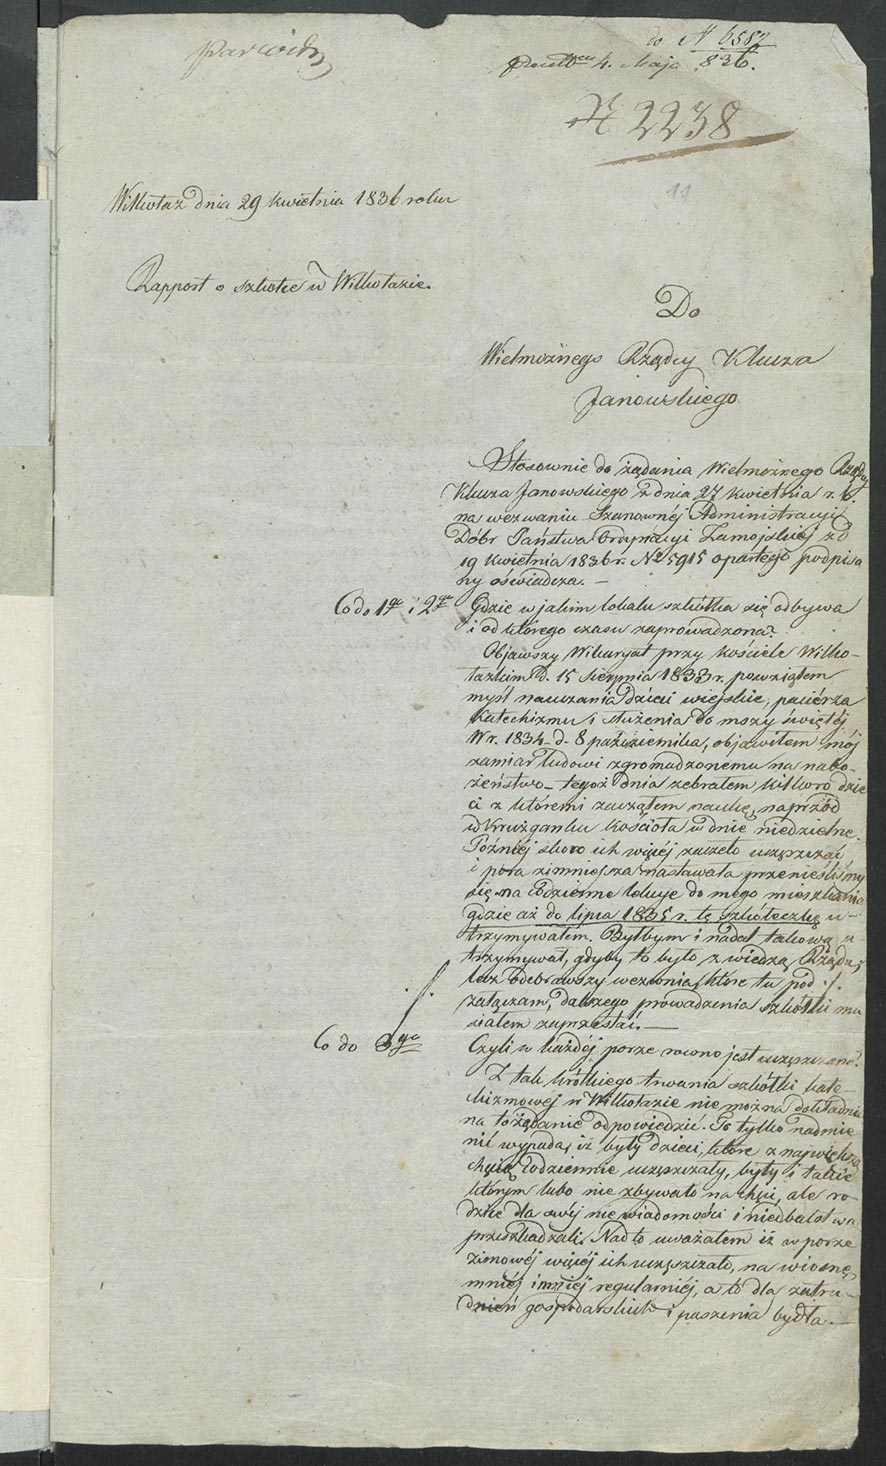 do N 6587
4. Maja 836.
N 2238
11
Wilkołaz dnia 29 kwietnia 1836 roku
Rapport o szkołce w Wilkołazie.
Do
Wielmożnego Rządcy Klucza
Janowskiego
Stosownie do żądania Wielmożnego Rządcy
Klucza Janowskiego z dnia 27 kwietnia r. b.
na wezwaniu Szanownéj Administracyi
Dóbr Państwa Ordynacyi Zamojskiéj z d
19 kwietnia 1836 r. No 5915 opartego podpisa
ny oświadcza. —
Co do 1go i 2go Gdzie w jakim lokalu szkółka się odbywa
i od którego czasu zaprowadzona?
Objąwszy Wikaryat przy kościele Wilko-
łazkim d. 15 sierpnia 1833 r. powziąłem
myśl nauczania dzieci wiejskie, paciérza
katechizmu i służenia do mszy świętéj
W r. 1834 d. 8 października, objawiłem mój
zamiar ludowi zgromadzonemu na nabo-
żeństwo — tegoż dnia zebrałem kilkoro dzie
ci z któremi zacząłem naukę, naprzód
w Krużganku kościoła w dnie niedzielne.
Późniéj skoro ich więcéj zaczęło uczęszczać,
i pora zimniejsza nastawała przenieśliśmy
się na codzienne lekcye do mego mieszkania
gdzie aż do lipca 1835 r. tę szkółeczkę u-
trzymywałem. Byłbym i nadal takową u-
trzymywał, gdyby to było z wiedzą Rządu,
lecz odebrawszy wezwania, które tu pod ./.
./.
załączam, dalszego prowadzenia szkółki mu
siałem zaprzestać. —
Co do 3go Czyli w każdéj porze rowno jest uczęszczana?
Z tak krótkiego trwania szkółki kate-
chizmowej w Wilkołazie nie można dokładnie
na to żądanie odpowiedzić. To tylko nadmie
nić wypada, iż były dzieci, które z największą
chęcią codziennie uczęszczały, były i takie
którym lubo nie zbywało na chęci, ale ro-
dzice dla swéj niewiadomości i niedbalstwa
przeszkadzali. Nadto uważałem iż w porze
zimowéj więcéj ich uczęszczało, na wiosnę
mniéj i mniéj regularniéj, a to dla zatru-
dnień gospodarskich i paszenia bydła. —